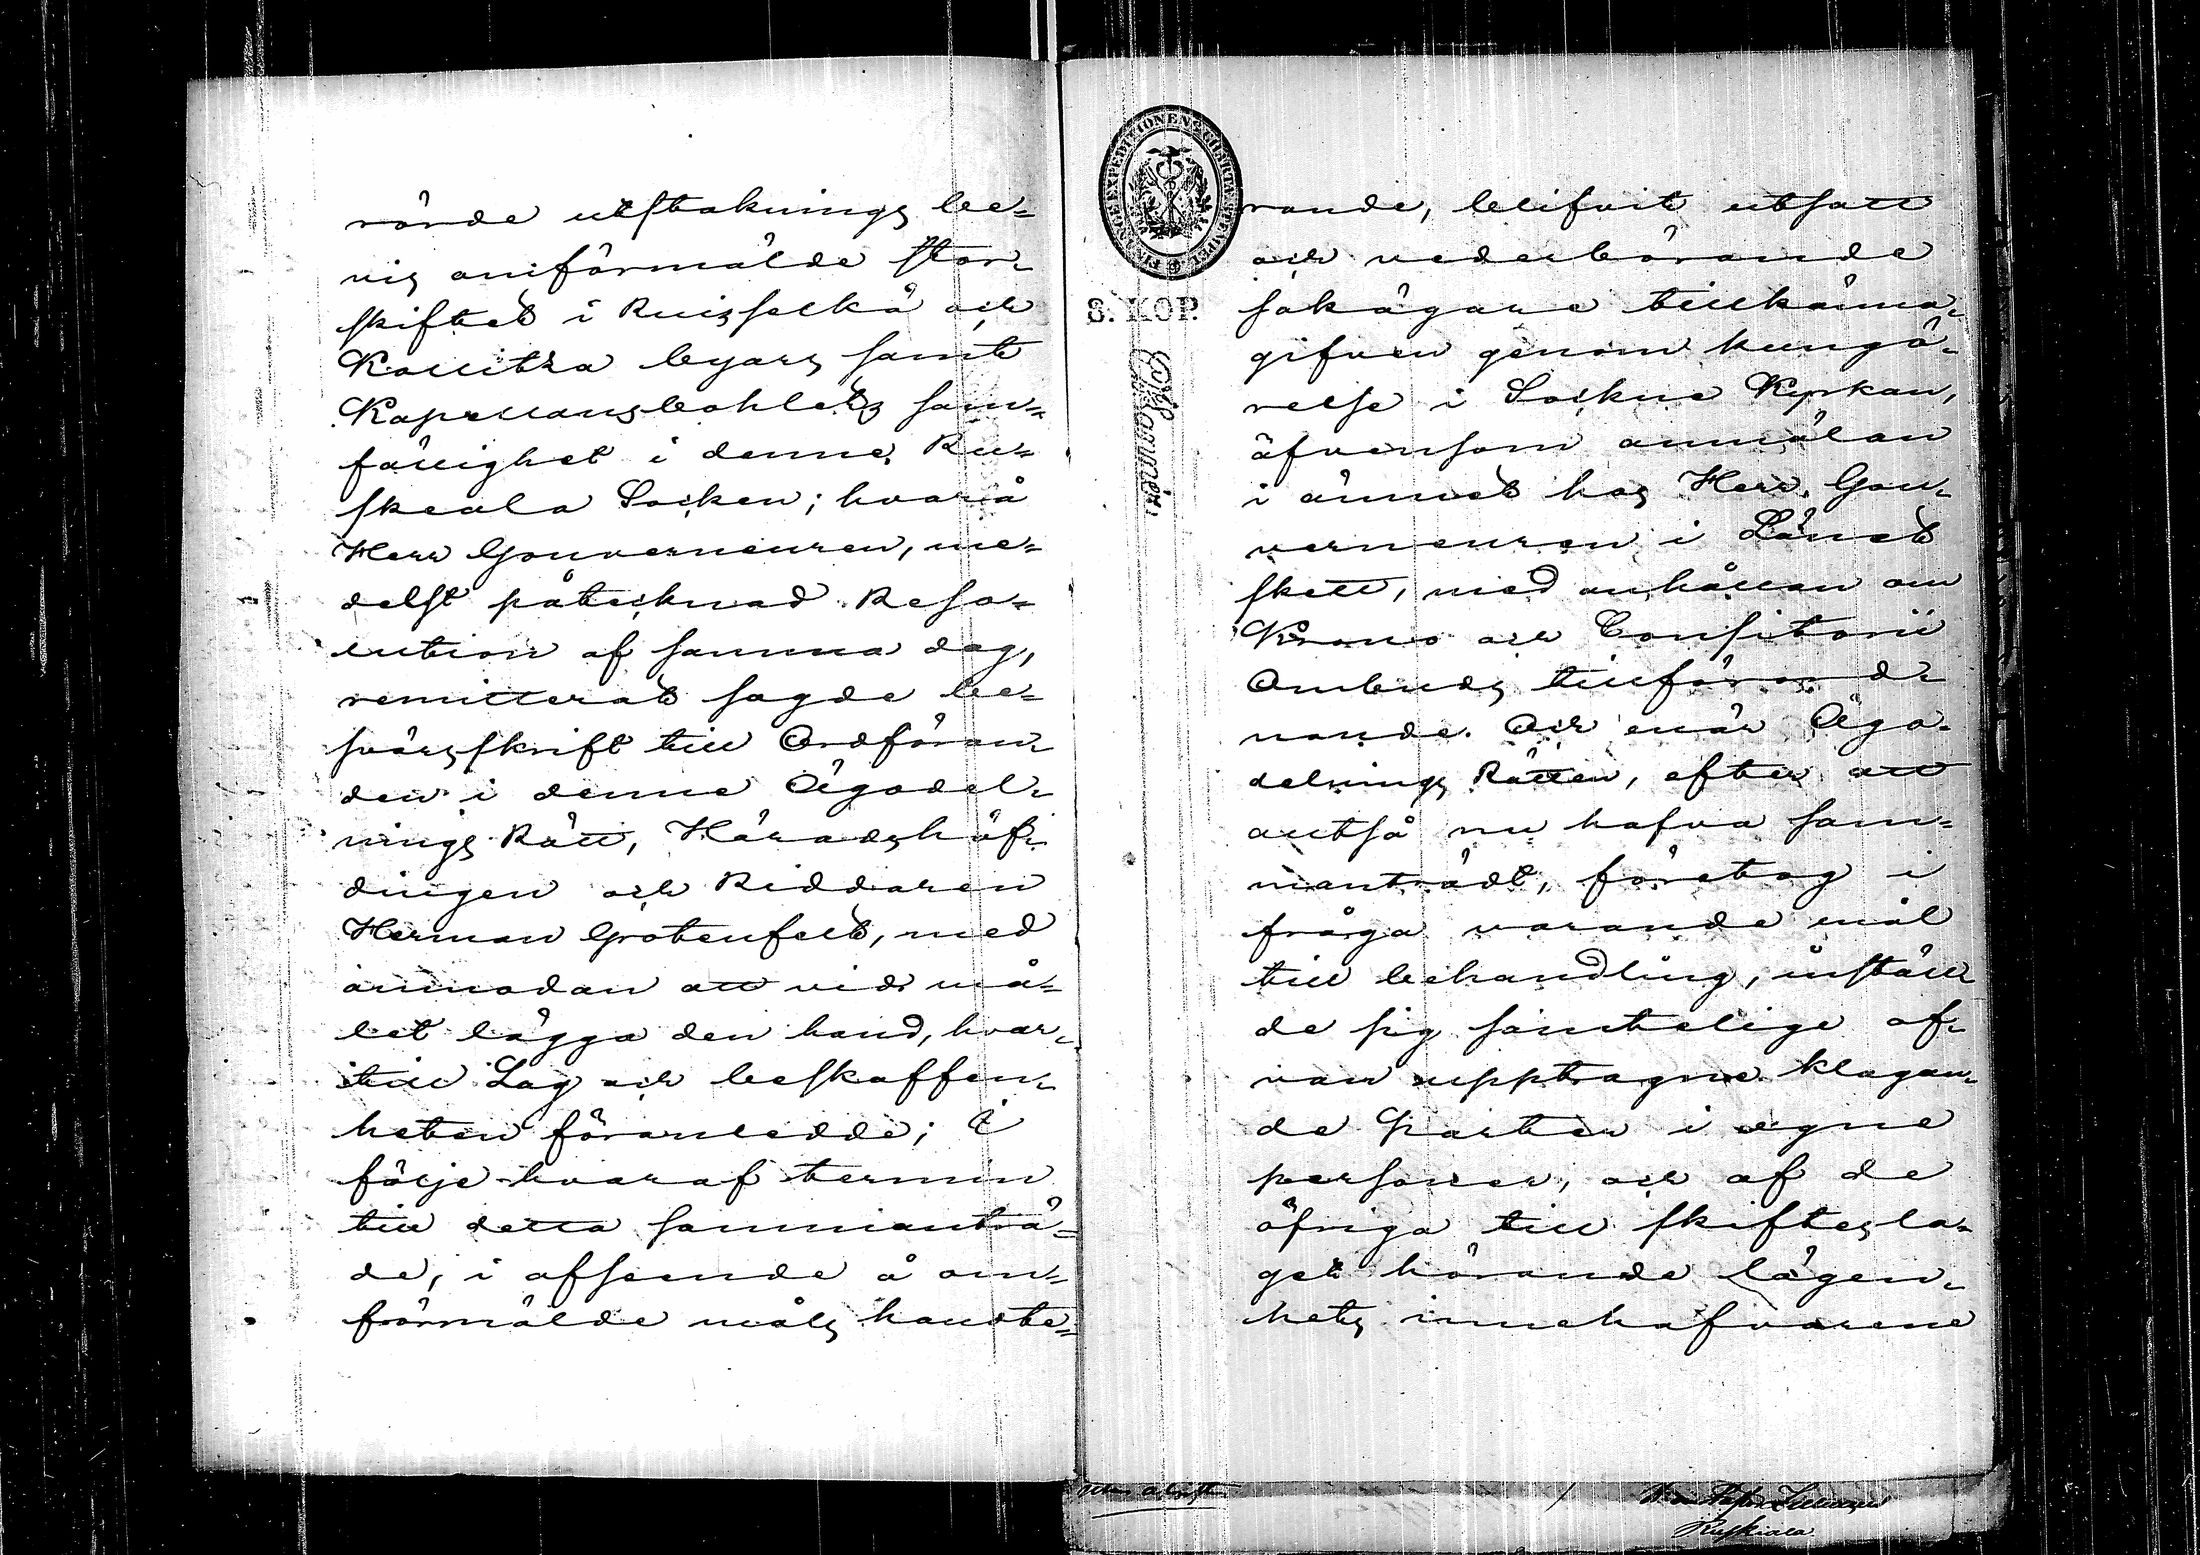 rörde utstaknings be-
vis omförmälde stor-
skiftet i Ruisselkä och
Kollitsa byars samt
Kapellansbohlets sam-
fällighet i denne Ru-
skeala Socken; hvarå
Herr Gouverneuren, me-
delst påtecknad Reso-
lution af samma dag,
remitterat sagde be-
svärsskrift till Ordföran-
den i denne Ägodel-
nings Rätt, Häradshöf-
dingen och Riddaren
Herman Grotenfelt, med
anmodan att vid må-
let lägga den hand, hvar-
till Lag och beskaffen-
heten föranledde; I
följe hvaraf termin
till detta sammanträ-
de, i afseende å om-
förmälde måls handte-
FINANCE EXPEDITIONENS CHARTÆ STÄMPEL
S. KOP.
rande, blifvit utsatt
och vederbörande
sakägare tillkänna-
gifven genom kungö-
relse i Sockne Kyrkan,
äfvensom anmälan
i ämnet hos Herr Gou-
verneuren i Länet
skett, med anhållan om
Krono och Consitorii
Ombuds tillförord-
nande. Och enär Ägo-
delnings Rätten, efter att
alltså nu hafva sam-
manträdt, företog i
fråga varande mål
till behandling, instäl-
de sig samtelige of-
van upptagne klagan-
de Parter i egne
personer, och af de
öfriga till skiftesla-
get hörande lägen-
hets innehafvarene
Ruskiala